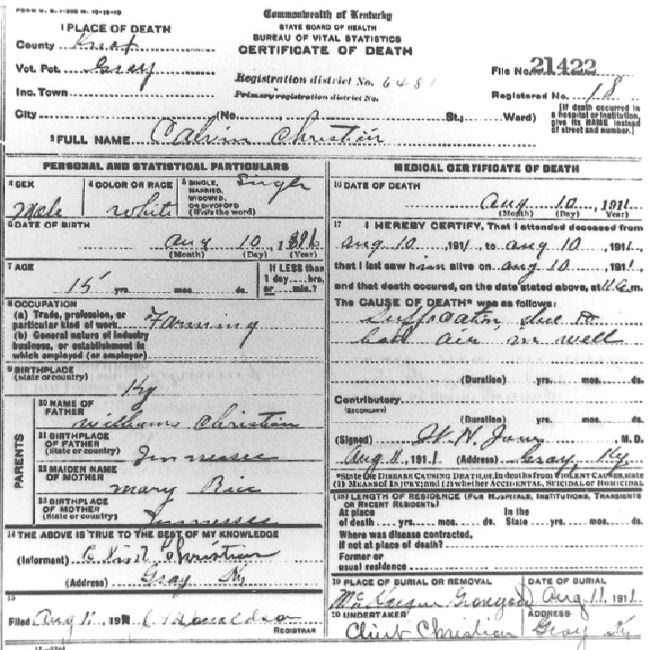 FORM V. S. 1-200 M. 10-15-10
Commonwealth of Kentucky
STATE BOARD OF HEALTH
BUREAU OF VITAL STATISTICS
CERTIFICATE OF DEATH
1 PLACE OF DEATH
County Knox
Vot. Pct. Gray
Inc. Town
Registration district No. 6481
Primary registration district No.
File No. 21422
Registered No. 18
[If death occurred in a hospital or institution, give its NAME instead of street and number.]
City (No. St.; Ward)
2 FULL NAME Calvin Christian
PERSONAL AND STATISTICAL PARTICULARS
3 SEX Male
4 COLOR OR RACE White
5 SINGLE, MARRIED, WIDOWED, OR DIVORCED (Write the word) Single
6 DATE OF BIRTH
Aug 10 1896
(Month) (Day) (Year)
7 AGE
15 yrs. mos. ds.
If LESS than 1 day hrs. or min.?
8 OCCUPATION
(a) Trade, profession, or particular kind of work Farming
(b) General nature of industry business, or establishment in which employed (or employer)
9 BIRTHPLACE
(State or country) Ky
PARENTS
10 NAME OF FATHER Williams Christian
11 BIRTHPLACE OF FATHER (State or country) Tennessee
12 MAIDEN NAME OF MOTHER Mary Rice
13 BIRTHPLACE OF MOTHER (State or country) Tennessee
14 THE ABOVE IS TRUE TO THE BEST OF MY KNOWLEDGE
(Informant) Christian
(Address) Gray Ky
15
Filed Aug 11 1911 Donaldson
REGISTRAR
MEDICAL CERTIFICATE OF DEATH
16 DATE OF DEATH
Aug 10 1911
(Month) (Day) (Year)
17 I HEREBY CERTIFY, That I attended deceased from
Aug 10 1911 to Aug 10 1911,
that I last saw him alive on Aug 10 1911,
and that death occured, on the date stated above, at 11 a.m.
The CAUSE OF DEATH* was as follows:
Suffocation due to
bad air in well
(Duration) yrs. mos. ds.
Contributory
(SECONDARY)
(Duration) yrs. mos. ds.
(Signed) M. D.
Aug 11 1911 (Address) Gray, Ky.
*State the DISEASE CAUSING DEATH, or, in deaths from VIOLENT CAUSES, state
(1) MEANS OF INJURY; and (2) whether ACCIDENTAL, SUICIDAL OR HOMICIDAL
18 LENGTH OF RESIDENCE (FOR HOSPITALS, INSTITUTIONS, TRANSIENTS
OR RECENT RESIDENTS)
At place of death yrs. mos. ds. In the State yrs. mos. ds.
Where was disease contracted,
If not at place of death?
Former or
usual residence
19 PLACE OF BURIAL OR REMOVAL
Graveyard
DATE OF BURIAL
Aug 11 1911
20 UNDERTAKER
Christian
ADDRESS
Gray Ky